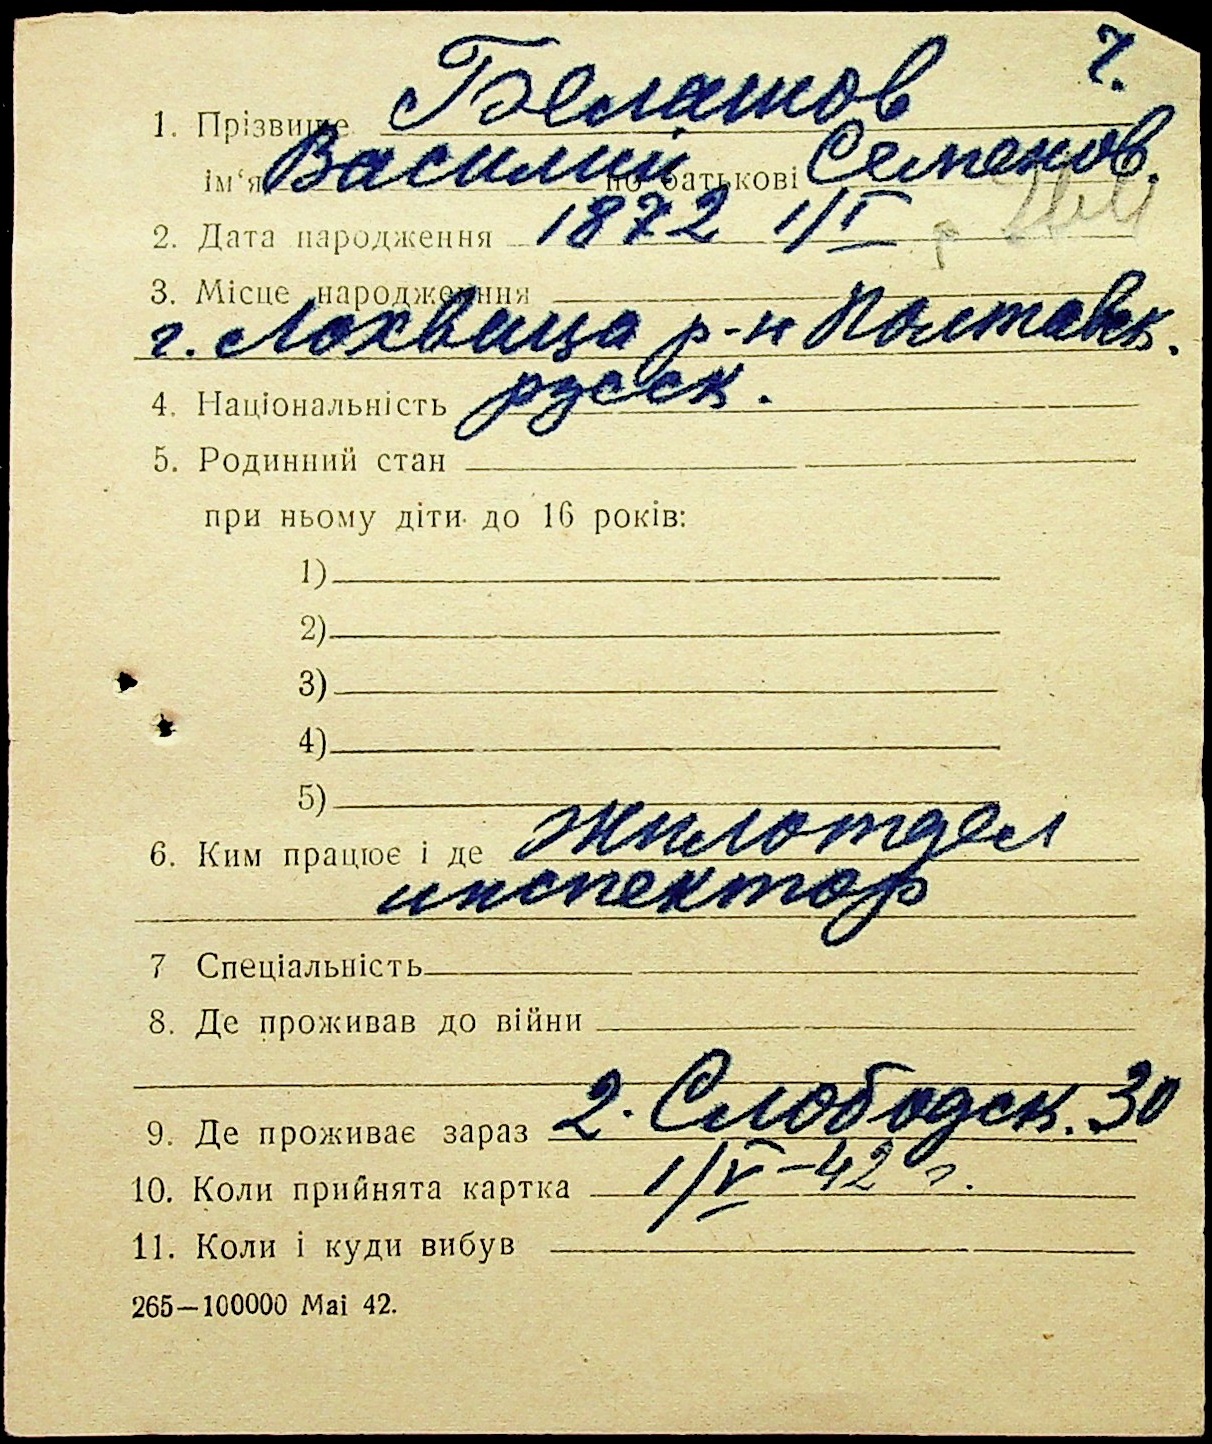 ч.
1. Прізвище Белашов
ім‘я Василий по батькові Семенов.
2. Дата народження 1872 1/I
3. Місце народження
г. Лохвица р-н Полтавск.
4. Національність русск.
5. Родинний стан
при ньому діти до 16 років:
1)
2)
3)
4)
5)
6. Ким працює і де Жилотдел
инспектор
7 Спеціальність
8. Де проживав до війни
9. Де проживає зараз 2. Слободск. 30
10. Коли прийнята картка 1/V-42 г.
11. Коли і куди вибув
265—100000 Mai 42.